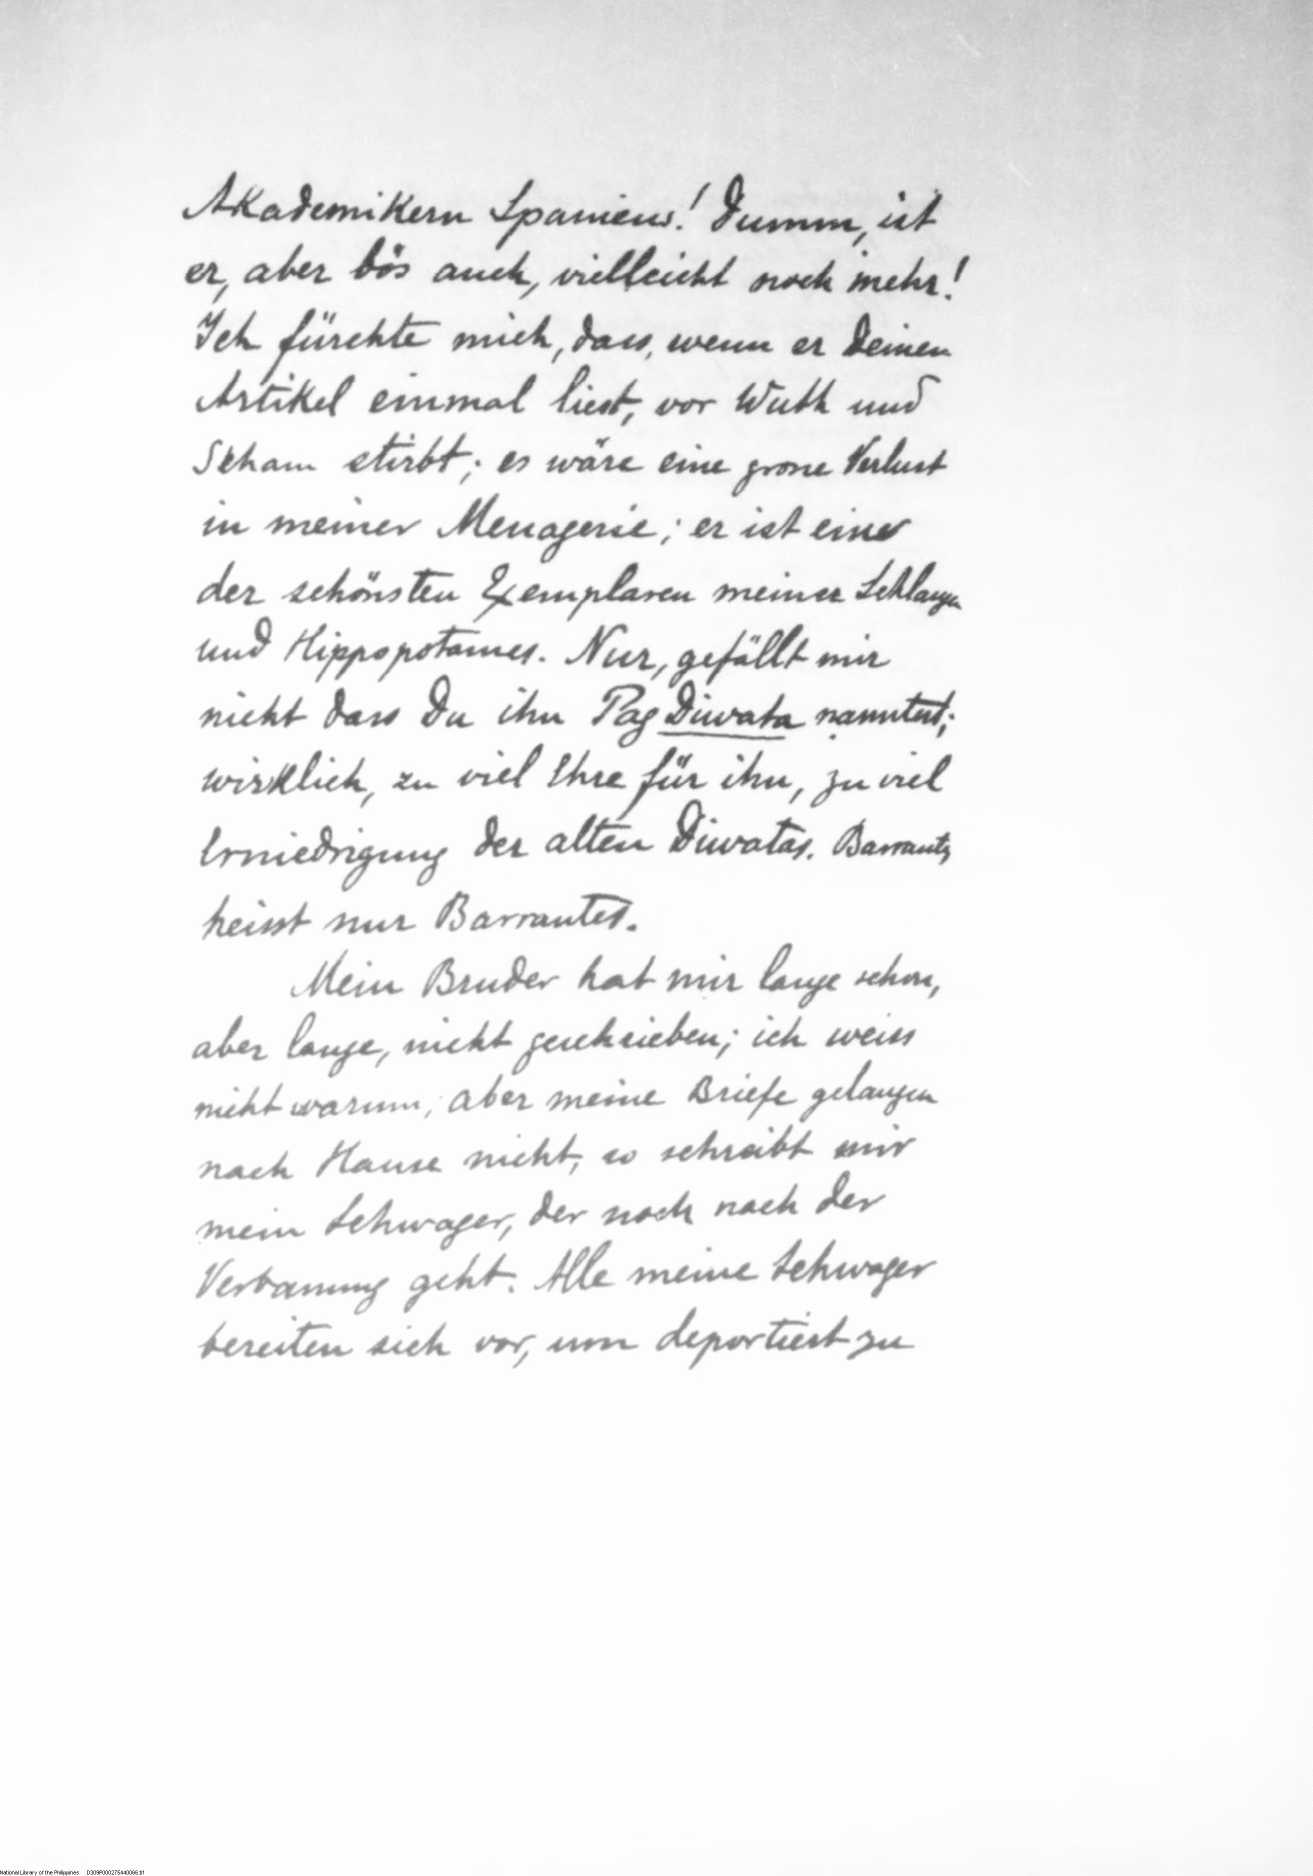 Akademikern Spaniens! Dumm, ist
er, aber bös auch, vielleicht noch mehr!
Ich fürchte mich, dass, wenn er Deinen
Artikel einmal liest, vor Wuth und
Scham stirbt; es wäre eine grosse Verlust
in meiner Menagerie; er ist einer
der schönsten Exemplaren meiner Schlangen
und Hippopotames. Nur, gefällt mir
nicht dass Du ihn Pag Diwata nanntest;
wirklich, zu viel Ehre für ihn, zu viel
Erniedrigung der alten Diwatas. Barrantes
heisst nur Barrantes.
Mein Bruder hat mir lange schon,
aber lange, nicht geschrieben; ich weiss
nicht warum; aber meine Briefe gelangen
nach Hause nicht, so schreibt mir
mein Schwager, der noch nach der
Verbannung geht. Alle meine Schwager
bereiten sich vor, um deportiert zu
National Library of the Philippines D309P000275440066.tif